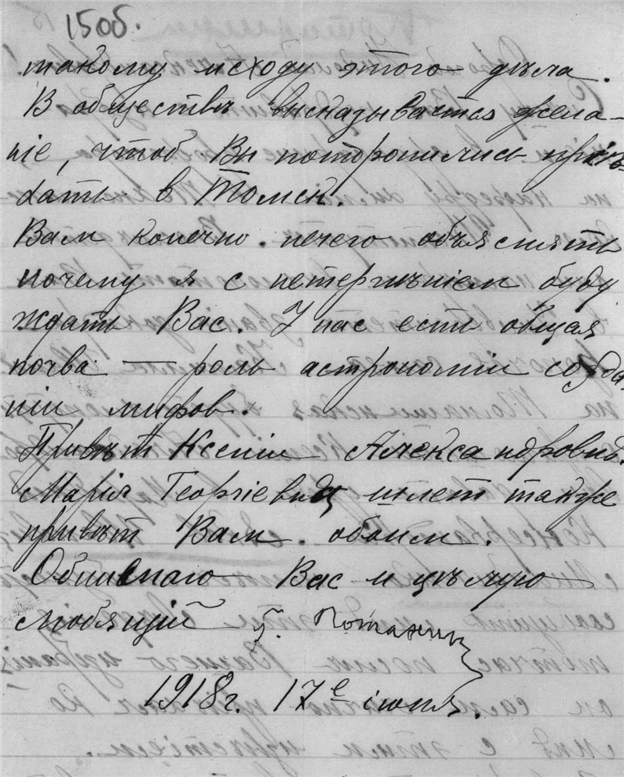 15об.
такому исходу этого дѣла.
В обществѣ высказывается жела-
ніе, чтоб Вы поторопились пріѣ-
хать в Томск.
Вам конечно нечего объяснять
почему я с нетерпѣніем буду
ждать Вас. У нас есть общая
почва — роль астрономіи созда-
ніи мифов.
Привѣт Ксеніи Александровнѣ.
Марія Георгіевна шлет также
привѣт Вам обоим.
Обнимаю Вас и цѣлую
любящій Г. Потанин
1918 г. 17е іюня.